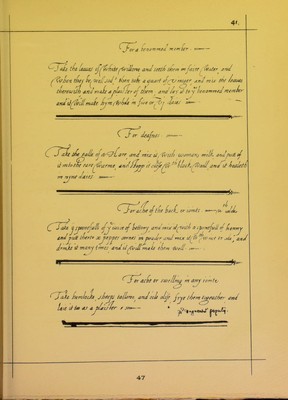 41.
For a benommed member.
Take the leaves of White Willowe and seeth them in faire water and
When they be well sod, then take a quart of vineger and mix the leaves
therewith and make a plaister of them and lay it to yᵉ benommed member
and it will make hym whole in five or daies
For deafnes
Take the galle of a Hare and mix it with womans milk and put it
into the eare warme, and stoppe it close wᵗʰ black wooll, and it healeth
in nyne daies.
For ache of the back, or ioints.
Take 9 sponefulls of yᵉ iuice of bettony and mix it with a sponefull of hunny
and put therto 9 pepper cornes in pouder and mix it wᵗʰ wine or ale and
drinke it many times and it will make them well
For ache or swelling in any ioynte
Take burdocks, sheeps tallowe, and ale frye them together and
laie it too as a plaister
47